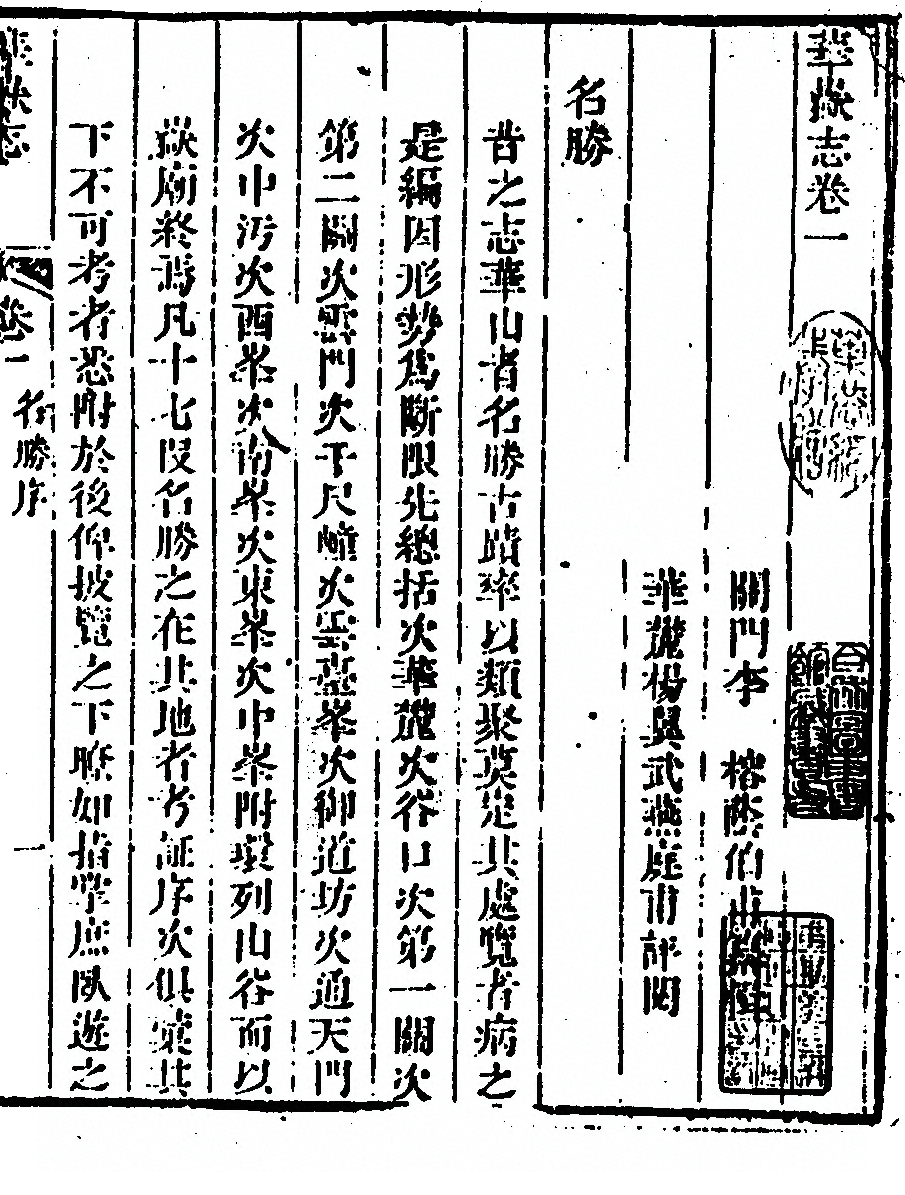 華嶽志卷一
關門李 榕蔭伯甫纂輯
華麓楊翼武燕庭甫評閱
名勝
昔之志華山者名勝古蹟率以類聚莫定其處覽者病之
是編因形勢爲斷限先總括次華麓次谷口次第一關次
第二關次雲門次千尺㠉次雲臺峯次御道坊次通天門
次中汸次西峯次南峯次東峯次中峯附環列山谷而以
嶽廟終焉凡十七段名勝之在其地者考証序次俱彙其
下不可考者悉附於後俾披覽之下瞭如指掌庶臥遊之
華嶽志
卷一
名勝序
一